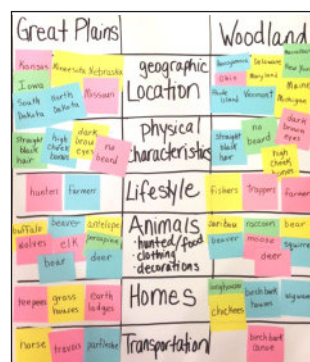 Great Plains
Woodland
Kansas
Minnesota
Nebraska
Iowa
South Dakota
North Dakota
Missouri
geographic
Location
Pennsylvania
Delaware
New York
Ohio
Maryland
Rhode Island
Vermont
Maine
Michigan
straight black hair
high cheek bones
dark brown eyes
no beard
physical
characteristics
straight black hair
no beard
dark brown eyes
high cheek bones
hunters
farmer
Lifestyle
fishers
trappers
farmer
buffalo
beaver
antelope
wolves
elk
porcupine
bear
deer
Animals
• hunted/food
• clothing
• decorations
caribou
raccoon
bear
beaver
moose
deer
teepees
grass houses
earth lodges
Homes
longhouses
birch bark houses
wigwam
chickees
horse
travois
parfleche
Transportation
birch bark canoe